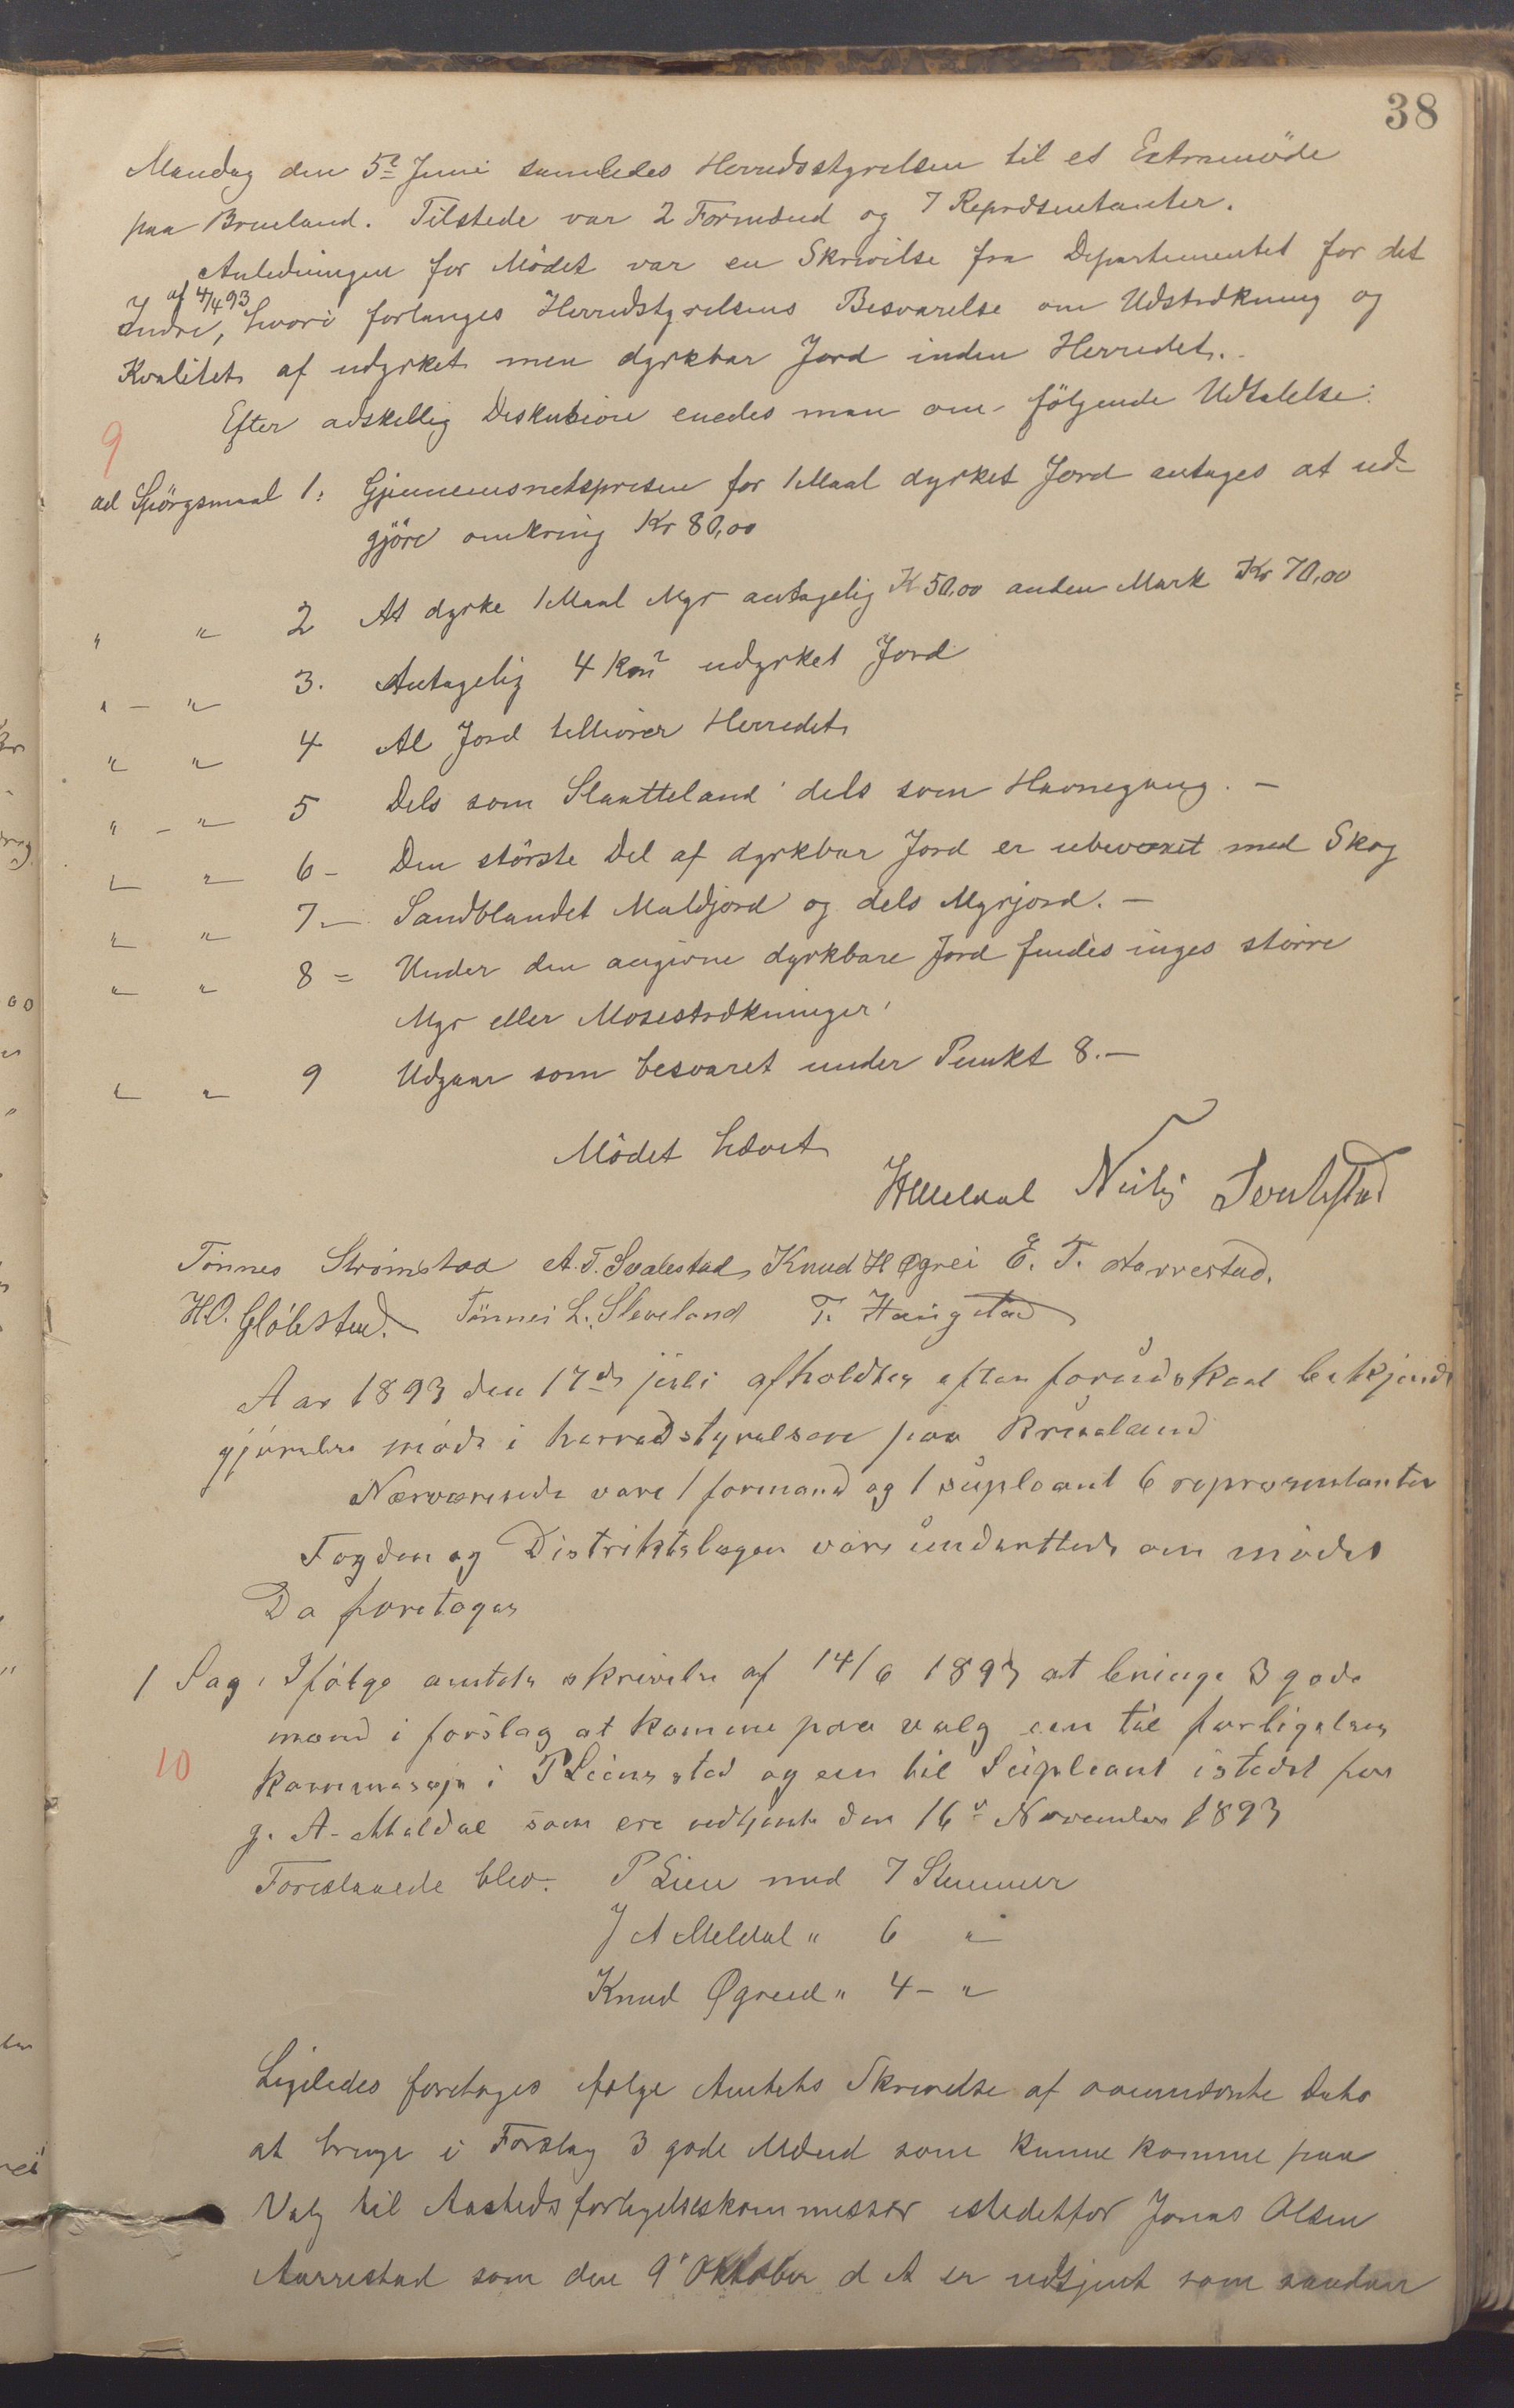 38
Mandag den 5te Juni samledes Herredsstyrelsen til et Extramöde
paa Brueland. Tilstede var 2 Formænd og 7 Repræsentanter.
Anledningen for Mödet var en Skrivelse fra Departementet for det
af 4/4 93
Indre, hvori forlanges Herredstyrelsens Besvarelse om Udstrækning og
Kvalitet af udyrket men dyrkbar Jord inden Herredet.
Efter adskellig Diskusion enedes man om fölgende Udtalelse:
9
ad Spörgsmaal 1: Gjennemsnetsprisen for 1 Maal dyrket Jord antages at ud-
gjöre omkring Kr 80,00
" " 2 At dyrke 1 Maal Myr antagelig K 50,00 anden Mark Kr 70,00
" - " 3. Antagelig 4 Km2 udyrket Jord
" " 4 Al Jord tilhörer Herredet
" - " 5 Dels som Slaatteland dels som Havnegang. -
" " 6 - Den störste Del af dyrkbar Jord er ubevoxet med Skog
" " 7. - Sandblandet Muldjord og dels Myrjord. -
" " 8 = Under den angivne dyrkbare Jord findes inges större
Myr eller Mosestrækninger
" " 9 Udgaar som besvaret under Punkt 8. -
Mödet hævet
Tönnes Strömstad A. T. Svalestad Knud H Øgrei E. T. Aarrestad.
Tönnes L. Sleveland T. Haugstad
Aar 1893 den 17de juli afholdtes efter forudskeet bekjendt
gjörelse möde i herredstyrelsen paa Brueland
Nærværende vare 1 formand og 1 supleant 6 repræsentanter
Fogden og Distriktslægen vare underettede om mödet
Da foretoges
1 Sag. Ifölge amtets skrivelse af 14/6 1893 at bringe 3 gode
mænd i forslag at komme paa valg een til forligelses
10
kommassjon i P Liens sted og een til Supleant istedet for
J. A. Meldal som ere udtjente den 16de November 1893
Foreslaaede blev. P Lien med 7 Stemmer
J A Meldal " 6 "
Knud Øgreid " 4 - "
Ligeledes foretoges ifølge Amtets Skrivelse af Dato
at bringe i Forslag 3 gode Mænd som kunne komme paa
Valg til Aastedsforligelseskommessær istedetfor Jonas Olsen
Aarrestad som den 9' Oktober d A er udtjent som saadan